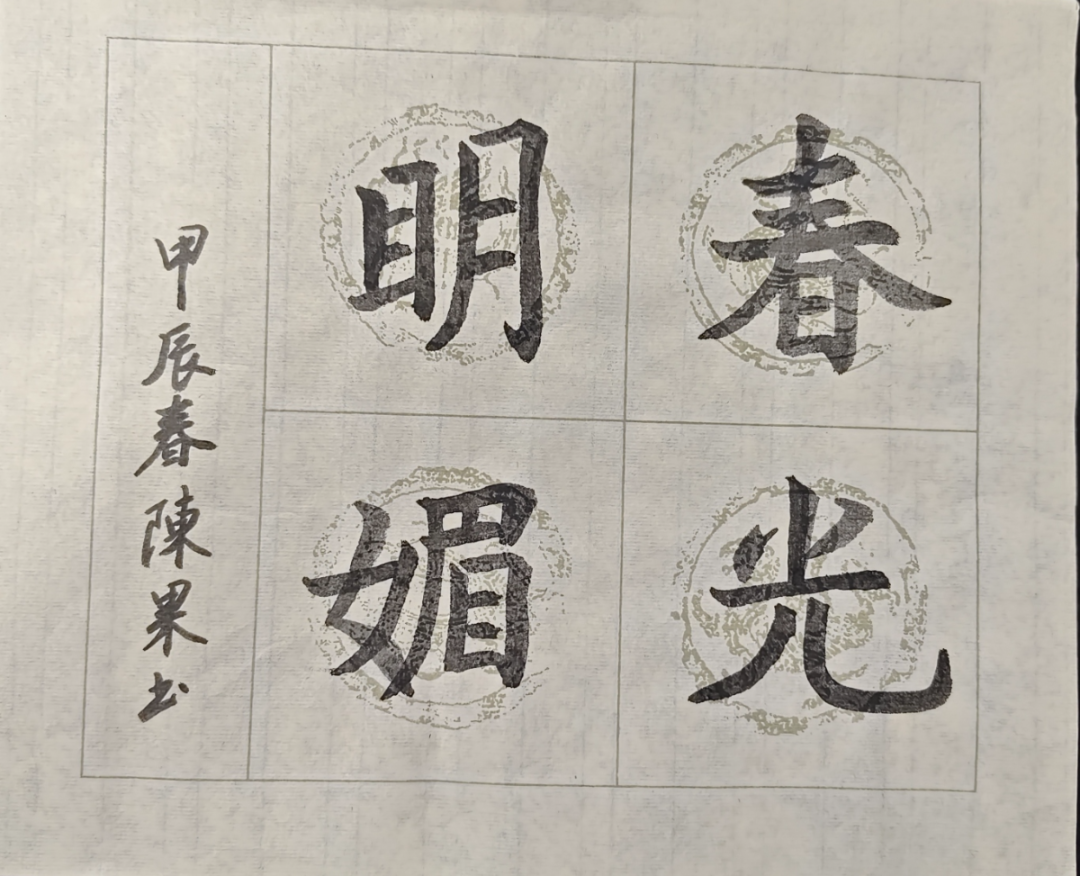 春光
明媚
甲辰春陳果书